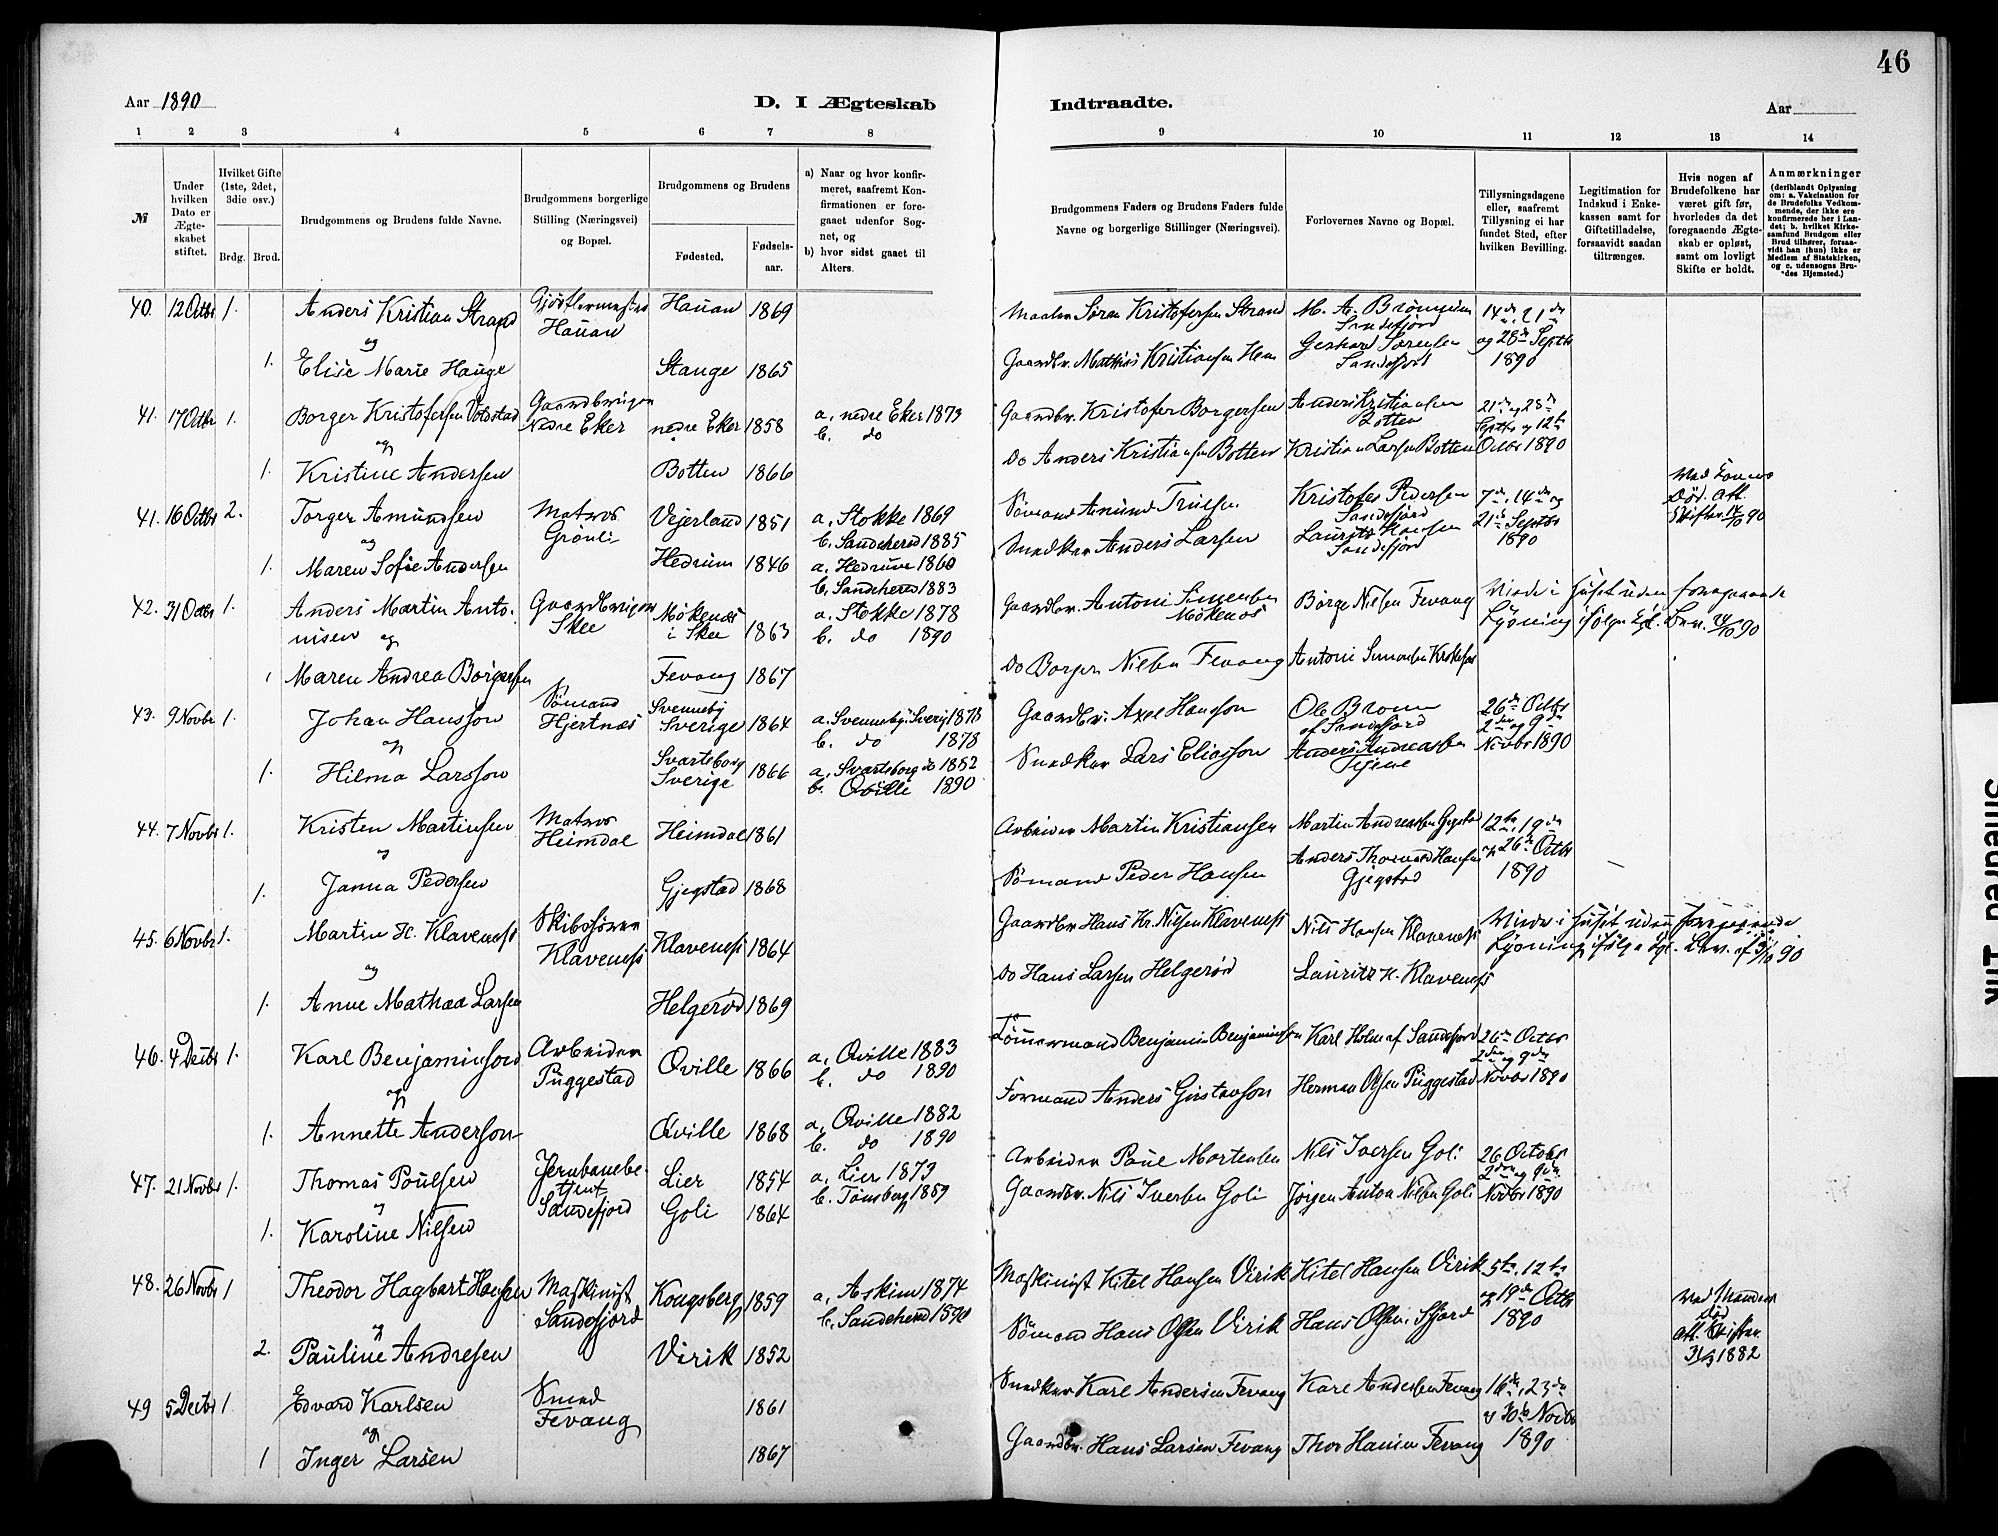 46
Aar 1890
D. I Ægteskab
Indtraadte.
Aar
1 2 3 4 5 6 7 8 9 10 11 12 13 14
№
Under hvilken Dato er Ægteskabet stiftet.
Hvilket Gifte (1ste, 2det, 3die osv.)
Brdg. Brud.
Brudgommens og Brudens fulde Navne.
Brudgommens borgerlige Stilling (Næringsvei) og Bopæl.
Brudgommens og Brudens
Fødested.
Fødselsaar.
a) Naar og hvor konfirmeret, saafremt Konfirmationen er foregaaet udenfor Sognet, og
b) hvor sidst gaaet til Alters.
Brudgommens Faders og Brudens Faders fulde Navne og borgerlige Stillinger (Næringsvei).
Forlovernes Navne og Bopæl.
Tillysningsdagene eller, saafremt Tillysning ei har fundet Sted, efter hvilken Bevilling.
Legitimation for Indskud i Enkekassen samt for Giftetilladelse, forsaavidt saadan tiltrænges.
Hvis nogen af Brudefolkene har været gift før, hvorledes da det foregaaende Ægteskab er opløst, samt om lovligt Skifte er holdt.
Anmærkninger
(deriblandt Oplysning om: a. Vakcination for de Brudefolks Vedkommende, der ikke ere konfirmerede her i Landet; b. hvilket Kirkesamfund Brudgom eller Brud tilhører, forsaavidt han (hun) ikke er Medlem af Statskirken, og c. udensogns Brudes Hjemsted.)
40. 12 Octbr 1. Anders Kristian Strand Hauan Hauan 1869 Maaler Søren Kristofersen Strand M. A. Sandefjord 14de, 21de
og
1. Elise Marie Hauge Stange 1865 Gaardbr. Mathias Kristiansen Hem Gerhard Sørensen Sandefjord og 28de Septbr 1890
41. 17 Octbr 1. Borger Kristofersen Gaardbruger Nedre Eker nedre Eker 1858 a. nedre Eker 1873 b. do Gaardbr. Kristofer Borgersen Anders Kristiansen Botten 21de og 28de Septbr og 12te
og
1. Kristine Andersen Botten 1866 Do Anders Kristiansen Botten Kristian Larsen Botten Octbr 1890
41. 16 Octbr 2. Torger Amundsen Matros Grønli Vejerland 1851 a. Stokke 1869 b. Sandeherred 1885 Sømand Amund Truelsen Kristofer Pedersen Sandefjord 7de, 14de og Ved Konens Død. Att. Skifter 14/10 90
og
1. Maren Sofie Andersen Hedrum 1846 a. Hedrum 1860 b. Sandeherred 1883 Snedker Anders Larsen Laurits Hansen Sandefjord 21de Septbr 1890
42. 31 Octbr 1. Anders Martin Antonisen Gaardbruger Skee Møkenæs i Skee 1863 a. Stokke 1878 b. do 1890 Gaardbr. Antoni Simensen Møkenæs Børge Nielsen Fevang Viede i Huset uden foregaaende Lysning ifølge Kgl. Bev.
og
1 Maren Andrea Borgersen Fevang 1867 Do Borger Nielsen Fevang Antoni Simonsen
43. 9 Novbr 1. Johan Hansson Sømand Hjertnæs Svenneby Sverige 1864 a. Svenneby, Sverig 1878 b. do 1878 Gaardbr. Axel Hansson Ole Brown af Sandefjord 26de Octbr
og
1. Hilma Larsson Svarteborg Sverige 1866 a. Svarteborg do 1882 b. Qville 1890 Snedker Lars Eliasson Anders Andreassen 2den og 9de Novbr 1890
44. 7 Novbr 1. Kristen Martinsen Matros Heimdal Heimdal 1861 Arbeider Martin Kristiansen Martin Andreassen Gjegstad 12te, 19de
og
1. Janna Pedersen Gjegstad 1868 Sømand Peder Hansen Anders Thorvald Hansen Gjegstad og 26de Octbr 1890
45. 6 Novbr 1. Martin H. Klaveness Skibsfører Klaveness Klaveness 1864 Gaardbr Hans Kr. Nilsen Klaveness Nils Hansen Klaveness Viede i Huset uden foregaaende Lysning ifølge Kgl. Bev. af
og
1. Anne Mathea Larsen Helgerød 1869 Do Hans Larsen Helgerød Lauritz H. Klaveness
46. 4 Decbr 1. Karl Benjaminson Arbeider Puggestad Qville 1866 a. Qville 1883 b. do 1890 Tømmermand Benjamin Benjaminsson Karl Holm af Sandefjord 26de Octbr
og
1. Annette Anderson Qville 1868 a. Qville 1882 b. do 1890 Formand Anders Gustavson Herman Olsen Puggestad 2den og 9de Novbr 1890
47. 21 Novbr 1. Thomas Poulsen Jernbanebetjent Sandefjord Lier 1854 a. Lier 1873 b. Tønsberg 1889 Arbeider Paul Mortensen Nils Iversen Goli 26 October
og
1. Karoline Nilsen Goli 1864 Gaardbr. Nils Iversen Goli Jørgen Anton Nilsen Goli 2den og 9de Novbr 1890
48. 26 Novbr 1 Theodor Hagbart Hansen Maskinist Sandefjord Kongsberg 1859 a. Askim 1874 b. Sandeherred 1890 Maskinist Kitel Hansen Virik Kitel Hansen Virik 5te, 12te Ved Mandens Død Att. Skifter. 31/3 1882
og
2. Pauline Andresen Virik 1852 Sømand Hans Olsen Virik Hans Olsen, Sfjord og 19de Octbr 1890
49 5 Decbr 1. Edvard Karlsen Smed Fevang 1861 Snedker Karl Andersen Fevang Karl Andersen Fevang 16de, 23de
og
1 Inger Larsen 1867 Gaardbr. Hans Larsen Fevang Thor Hansen Fevang og 30te Novbr 1890